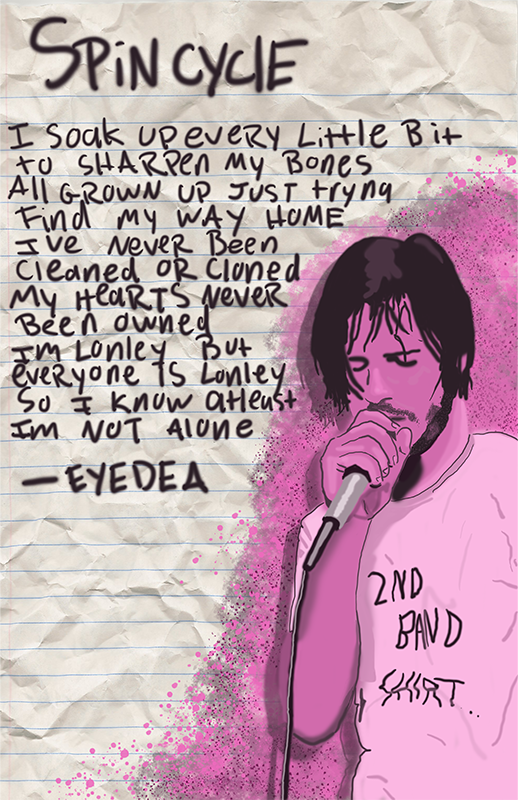 SPiN CYCLE
I SOAK UP EVERY Little Bit
to SHARPEN MY BONES
All GROWN UP JUST tryna
Find MY WAY HOME
I'VE NEVER BEEN
CLEANED OR CLONED
MY HEARTS NEVER
BEEN OWNED
IM LONLEY BUT
EVERYONE IS LONLEY
SO I KNOW AtLEASt
IM NOT ALONE
— EYEDEA
2ND
BAND
SHIRT.